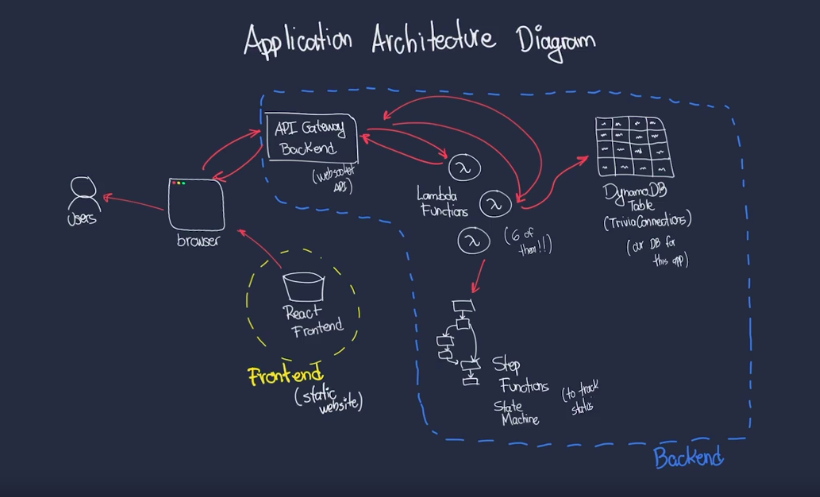 Application Architecture Diagram
API Gateway
Backend
(websocket
API)
Users
browser
λ
λ
λ
Lambda
Functions
(6 of
them!!)
DynamoDB
Table
(TriviaConnections)
(our DB for
this app)
React
Frontend
Frontend
(static
website)
Step
Functions
State
Machine
(to track
status
Backend